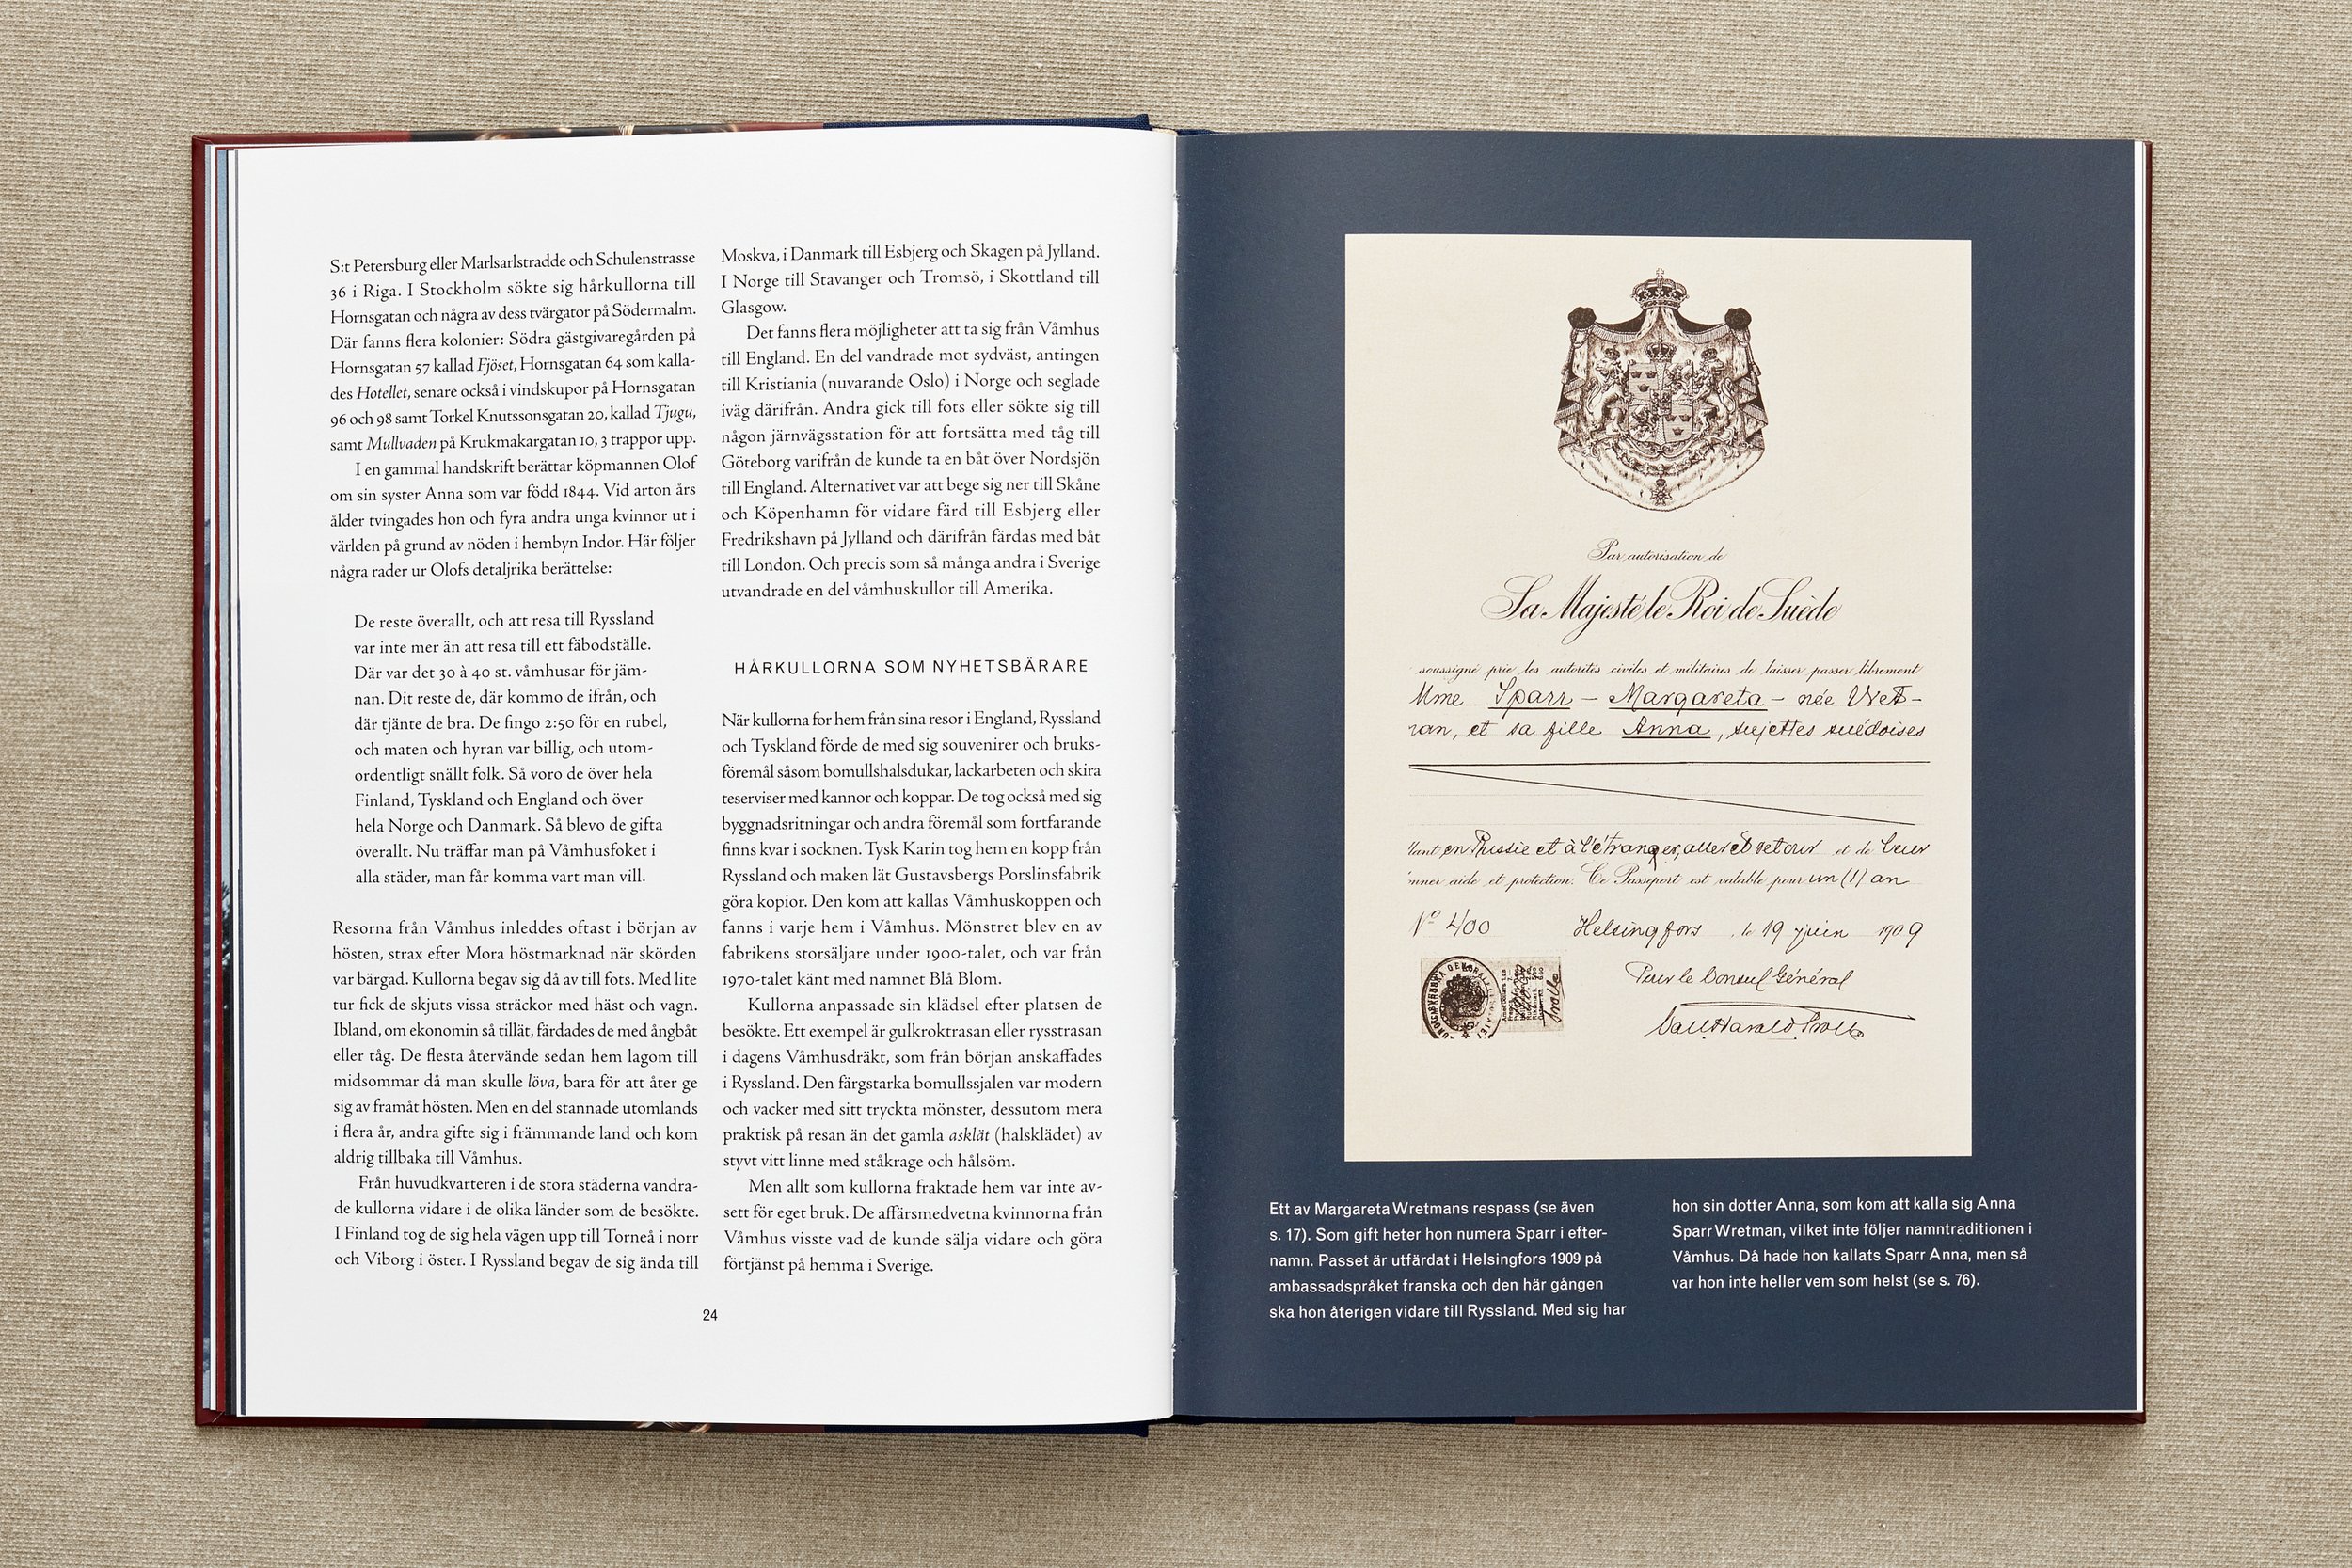 S:t Petersburg eller Marlsarlstradde och Schulenstrasse
36 i Riga. I Stockholm sökte sig hårkullorna till
Hornsgatan och några av dess tvärgator på Södermalm.
Där fanns flera kolonier: Södra gästgivaregården på
Hornsgatan 57 kallad Fjöset, Hornsgatan 64 som kalla-
des Hotellet, senare också i vindskupor på Hornsgatan
96 och 98 samt Torkel Knutssonsgatan 20, kallad Tjugu,
samt Mullvaden på Krukmakargatan 10, 3 trappor upp.
I en gammal handskrift berättar köpmannen Olof
om sin syster Anna som var född 1844. Vid arton års
ålder tvingades hon och fyra andra unga kvinnor ut i
världen på grund av nöden i hembyn Indor. Här följer
några rader ur Olofs detaljrika berättelse:
De reste överallt, och att resa till Ryssland
var inte mer än att resa till ett fäbodställe.
Där var det 30 à 40 st. våmhusar för jäm-
nan. Dit reste de, där kommo de ifrån, och
där tjänte de bra. De fingo 2:50 för en rubel,
och maten och hyran var billig, och utom-
ordentligt snällt folk. Så voro de över hela
Finland, Tyskland och England och över
hela Norge och Danmark. Så blevo de gifta
överallt. Nu träffar man på Våmhusfoket i
alla städer, man får komma vart man vill.
Resorna från Våmhus inleddes oftast i början av
hösten, strax efter Mora höstmarknad när skörden
var bärgad. Kullorna begav sig då av till fots. Med lite
tur fick de skjuts vissa sträckor med häst och vagn.
Ibland, om ekonomin så tillät, färdades de med ångbåt
eller tåg. De flesta återvände sedan hem lagom till
midsommar då man skulle löva, bara för att åter ge
sig av framåt hösten. Men en del stannade utomlands
i flera år, andra gifte sig i främmande land och kom
aldrig tillbaka till Våmhus.
Från huvudkvarteren i de stora städerna vandra-
de kullorna vidare i de olika länder som de besökte.
I Finland tog de sig hela vägen upp till Torneå i norr
och Viborg i öster. I Ryssland begav de sig ända till
Moskva, i Danmark till Esbjerg och Skagen på Jylland.
I Norge till Stavanger och Tromsö, i Skottland till
Glasgow.
Det fanns flera möjligheter att ta sig från Våmhus
till England. En del vandrade mot sydväst, antingen
till Kristiania (nuvarande Oslo) i Norge och seglade
iväg därifrån. Andra gick till fots eller sökte sig till
någon järnvägsstation för att fortsätta med tåg till
Göteborg varifrån de kunde ta en båt över Nordsjön
till England. Alternativet var att bege sig ner till Skåne
och Köpenhamn för vidare färd till Esbjerg eller
Fredrikshavn på Jylland och därifrån färdas med båt
till London. Och precis som så många andra i Sverige
utvandrade en del våmhuskullor till Amerika.
HÅRKULLORNA SOM NYHETSBÄRARE
När kullorna for hem från sina resor i England, Ryssland
och Tyskland förde de med sig souvenirer och bruks-
föremål såsom bomullshalsdukar, lackarbeten och skira
teserviser med kannor och koppar. De tog också med sig
byggnadsritningar och andra föremål som fortfarande
finns kvar i socknen. Tysk Karin tog hem en kopp från
Ryssland och maken lät Gustavsbergs Porslinsfabrik
göra kopior. Den kom att kallas Våmhuskoppen och
fanns i varje hem i Våmhus. Mönstret blev en av
fabrikens storsäljare under 1900-talet, och var från
1970-talet känt med namnet Blå Blom.
Kullorna anpassade sin klädsel efter platsen de
besökte. Ett exempel är gulkroktrasan eller rysstrasan
i dagens Våmhusdräkt, som från början anskaffades
i Ryssland. Den färgstarka bomullssjalen var modern
och vacker med sitt tryckta mönster, dessutom mera
praktisk på resan än det gamla asklät (halsklädet) av
styvt vitt linne med ståkrage och hålsöm.
Men allt som kullorna fraktade hem var inte av-
sett för eget bruk. De affärsmedvetna kvinnorna från
Våmhus visste vad de kunde sälja vidare och göra
förtjänst på hemma i Sverige.
24
Par autorisation de
Sa Majesté le Roi de Suède
soussigné prie les autorités civiles et militaires de laisser passer librement
Mme Sparr – Margareta – née Wret-
man, et sa fille Anna, sujettes suédoises
en Russie et à l'étranger, aller et retour et de leur
aide et protection. Ce Passeport est valable pour un (1) an
No 400 Helsingfors, le 19 juin 1909
Pour le Consul Général
Ett av Margareta Wretmans respass (se även
s. 17). Som gift heter hon numera Sparr i efter-
namn. Passet är utfärdat i Helsingfors 1909 på
ambassadspråket franska och den här gången
ska hon återigen vidare till Ryssland. Med sig har
hon sin dotter Anna, som kom att kalla sig Anna
Sparr Wretman, vilket inte följer namntraditionen i
Våmhus. Då hade hon kallats Sparr Anna, men så
var hon inte heller vem som helst (se s. 76).